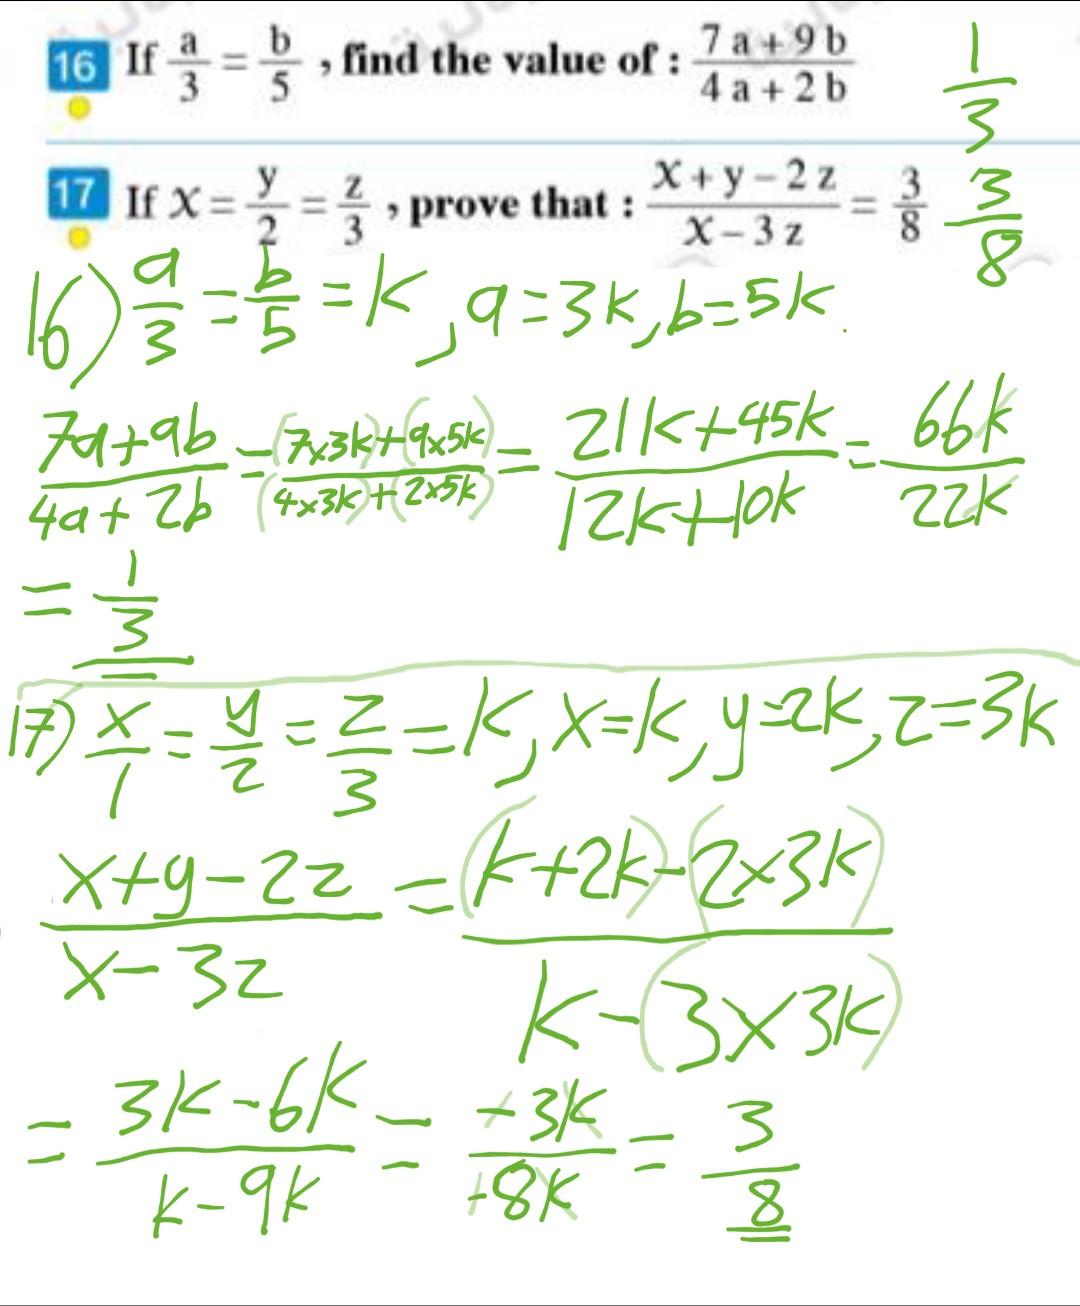 16 If a/3 = b/5 , find the value of : (7 a + 9 b)/(4 a + 2 b) 1/3
17 If x = y/2 = z/3 , prove that : (x + y – 2 z)/(x – 3 z) = 3/8 3/8
16) a/3 = b/5 = k , a = 3k, b = 5k .
(7a+9b)/(4a+2b) = ((7×3k)+(9×5k))/((4×3k)+(2×5k)) = (21k+45k)/(12k+10k) = 66k/22k
= 1/3
17) x/1 = y/2 = z/3 = k, x=k, y=2k, z=3k
(x+y-2z)/(x-3z) = ((k+2k)-(2×3k))/(k-(3×3k))
= (3k-6k)/(k-9k) = -3k/-8k = 3/8